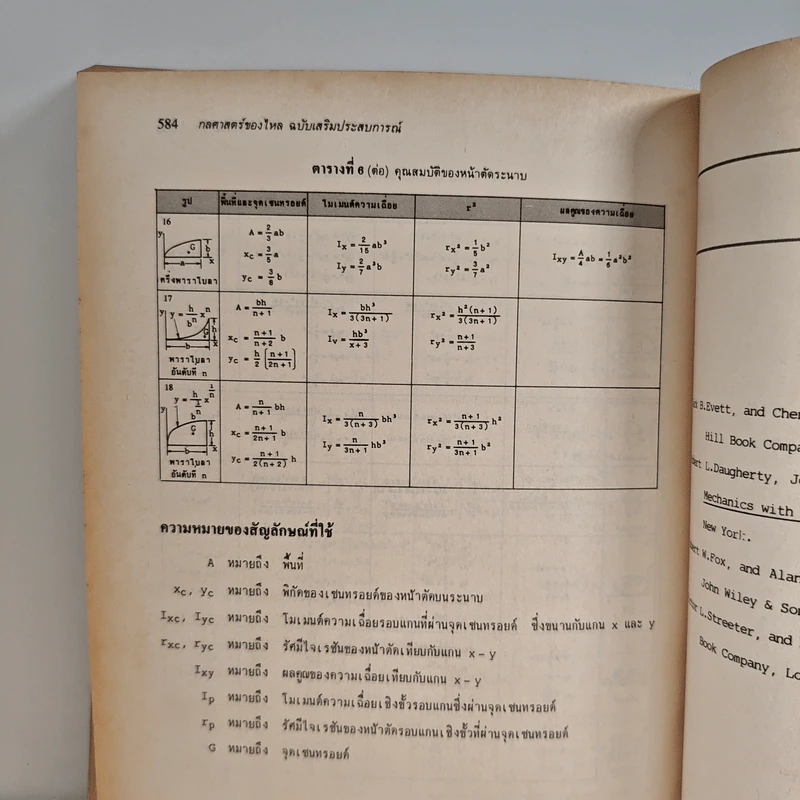 584 กลศาสตร์ของไหล ฉบับเสริมประสบการณ์
ตารางที่ 6 (ต่อ) คุณสมบัติของหน้าตัดระนาบ
รูป พื้นที่และจุดเซนทรอยด์ โมเมนต์ความเฉื่อย r² ผลคูณของความเฉื่อย
16
y b G x a
ครึ่งพาราโบลา
A = 2/3 ab
xc = 3/5 a
yc = 3/8 b
Ix = 2/15 ab³
Iy = 2/7 a³b
rx² = 1/5 b²
ry² = 3/7 a²
Ixy = A/4 ab = 1/6 a²b²
17
y y = h/bⁿ xⁿ
G h x b
พาราโบลา
อันดับที่ n
A = bh/n+1
xc = n+1/n+2 b
yc = h/2 [n+1/2n+1]
Ix = bh³/3(3n+1)
Iy = hb³/x+3
rx² = h²(n+1)/3(3n+1)
ry² = n+1/n+3
18
y = h/b^(1/n) x^(1/n)
y G h x b
พาราโบลา
อันดับที่ n
A = n/n+1 bh
xc = n+1/2n+1 b
yc = n+1/2(n+2) h
Ix = n/3(n+3) bh³
Iy = n/3n+1 hb³
rx² = n+1/3(n+3) h²
ry² = n+1/3n+1 b²
ความหมายของสัญลักษณ์ที่ใช้
A หมายถึง พื้นที่
xc, yc หมายถึง พิกัดของเซนทรอยด์ของหน้าตัดบนระนาบ
Ixc, Iyc หมายถึง โมเมนต์ความเฉื่อยรอบแกนที่ผ่านจุดเซนทรอยด์ ซึ่งขนานกับแกน x และ y
rxc, ryc หมายถึง รัศมีไจเรชันของหน้าตัดเทียบกับแกน x – y
Ixy หมายถึง ผลคูณของความเฉื่อยเทียบกับแกน x – y
Ip หมายถึง โมเมนต์ความเฉื่อยเชิงขั้วรอบแกนซึ่งผ่านจุดเซนทรอยด์
rp หมายถึง รัศมีไจเรชันของหน้าตัดรอบแกนเชิงขั้วที่ผ่านจุดเซนทรอยด์
G หมายถึง จุดเซนทรอยด์
B.Evett, and
Hill Book
L.Daugherty,
Mechanics with
New York.
W.Fox, and
John Wiley &
L.Streeter, and
Book Company,